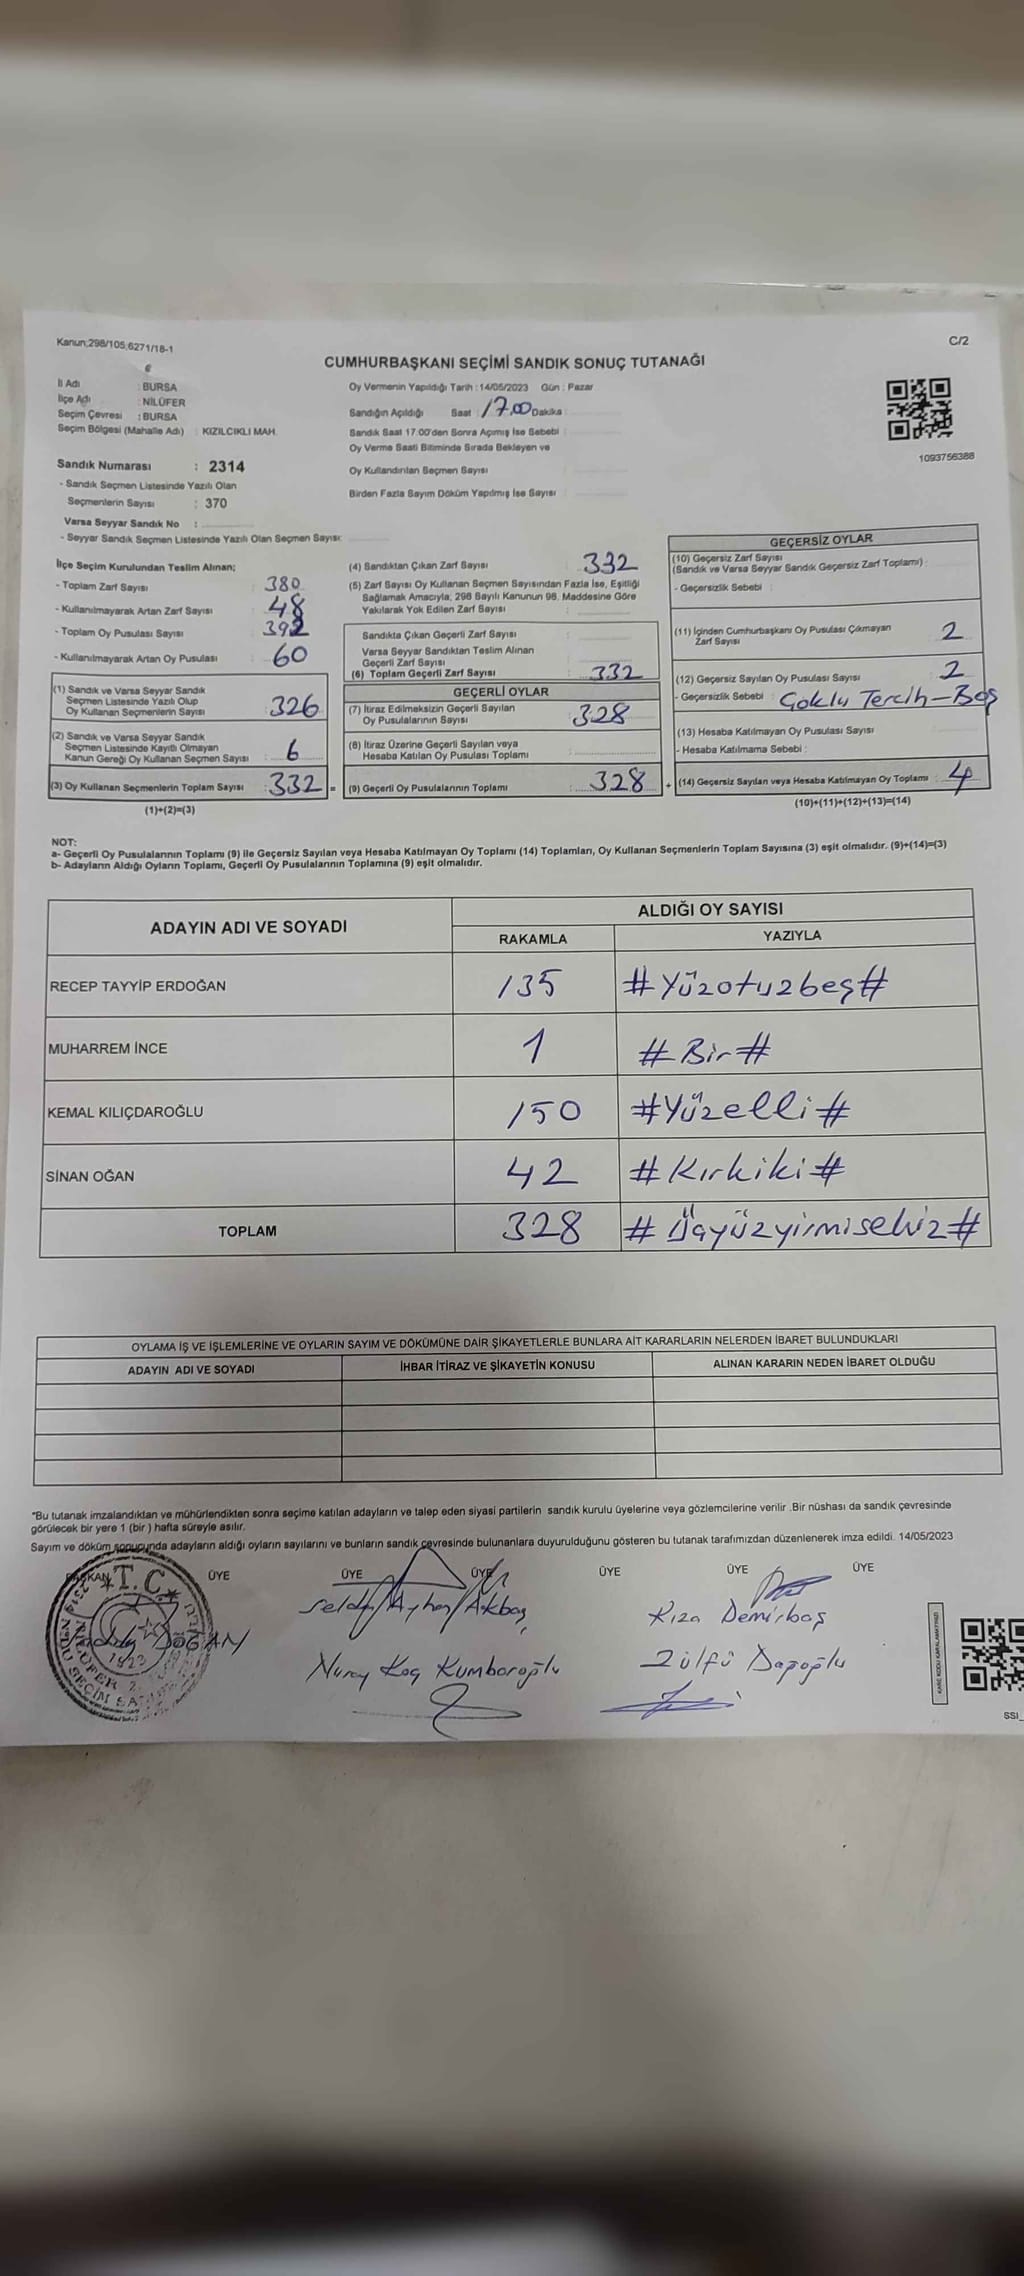 Kanun;298/105,6271/18-1
C/2
CUMHURBAŞKANI SEÇİMİ SANDIK SONUÇ TUTANAĞI
İl Adı : BURSA
İlçe Adı : NİLÜFER
Seçim Çevresi : BURSA
Seçim Bölgesi (Mahalle Adı) : KIZILCIKLI MAH.
Sandık Numarası : 2314
- Sandık Seçmen Listesinde Yazılı Olan
Seçmenlerin Sayısı : 370
Varsa Seyyar Sandık No :
- Seyyar Sandık Seçmen Listesinde Yazılı Olan Seçmen Sayısı:
Oy Vermenin Yapıldığı Tarih : 14/05/2023 Gün : Pazar
Sandığın Açıldığı Saat : 17.00 Dakika :
Sandık Saat 17:00'den Sonra Açımış İse Sebebi :
Oy Verme Saati Bitiminde Sırada Bekleyen ve
Oy Kullandırılan Seçmen Sayısı :
Birden Fazla Sayım Döküm Yapılmış İse Sayısı :
1093756388
İlçe Seçim Kurulundan Teslim Alınan;
- Toplam Zarf Sayısı : 380
- Kullanılmayarak Artan Zarf Sayısı : 48
- Toplam Oy Pusulası Sayısı : 392
- Kullanılmayarak Artan Oy Pusulası : 60
(1) Sandık ve Varsa Seyyar Sandık
Seçmen Listesinde Yazılı Olup
Oy Kullanan Seçmenlerin Sayısı : 326
(2) Sandık ve Varsa Seyyar Sandık
Seçmen Listesinde Kayıtlı Olmayan
Kanun Gereği Oy Kullanan Seçmen Sayısı : 6
(3) Oy Kullanan Seçmenlerin Toplam Sayısı : 332 =
(1)+(2)=(3)
(4) Sandıktan Çıkan Zarf Sayısı : 332
(5) Zarf Sayısı Oy Kullanan Seçmen Sayısından Fazla İse, Eşitliği
Sağlamak Amacıyla; 298 Sayılı Kanunun 98. Maddesine Göre
Yakılarak Yok Edilen Zarf Sayısı :
Sandıkta Çıkan Geçerli Zarf Sayısı :
Varsa Seyyar Sandıktan Teslim Alınan
Geçerli Zarf Sayısı :
(6) Toplam Geçerli Zarf Sayısı : 332
GEÇERLİ OYLAR
(7) İtiraz Edilmeksizin Geçerli Sayılan
Oy Pusulalarının Sayısı : 328
(8) İtiraz Üzerine Geçerli Sayılan veya
Hesaba Katılan Oy Pusulası Toplamı :
(9) Geçerli Oy Pusulalarının Toplamı : 328 +
GEÇERSİZ OYLAR
(10) Geçersiz Zarf Sayısı
(Sandık ve Varsa Seyyar Sandık Geçersiz Zarf Toplamı) :
- Geçersizlik Sebebi :
(11) İçinden Cumhurbaşkanı Oy Pusulası Çıkmayan
Zarf Sayısı : 2
(12) Geçersiz Sayılan Oy Pusulası Sayısı : 2
- Geçersizlik Sebebi : Çoklu Tercih-Boş
(13) Hesaba Katılmayan Oy Pusulası Sayısı :
- Hesaba Katılmama Sebebi :
(14) Geçersiz Sayılan veya Hesaba Katılmayan Oy Toplamı : 4
(10)+(11)+(12)+(13)=(14)
NOT:
a- Geçerli Oy Pusulalarının Toplamı (9) ile Geçersiz Sayılan veya Hesaba Katılmayan Oy Toplamı (14) Toplamları, Oy Kullanan Seçmenlerin Toplam Sayısına (3) eşit olmalıdır. (9)+(14)=(3)
b- Adayların Aldığı Oyların Toplamı, Geçerli Oy Pusulalarının Toplamına (9) eşit olmalıdır.
ADAYIN ADI VE SOYADI ALDIĞI OY SAYISI
RAKAMLA YAZIYLA
RECEP TAYYİP ERDOĞAN 135 #Yüzotuzbeş#
MUHARREM İNCE 1 #Bir#
KEMAL KILIÇDAROĞLU 150 #Yüzelli#
SİNAN OĞAN 42 #Kırkiki#
TOPLAM 328 #Üçyüzyirmisekiz#
OYLAMA İŞ VE İŞLEMLERİNE VE OYLARIN SAYIM VE DÖKÜMÜNE DAİR ŞİKAYETLERLE BUNLARA AİT KARARLARIN NELERDEN İBARET BULUNDUKLARI
ADAYIN ADI VE SOYADI İHBAR İTİRAZ VE ŞİKAYETİN KONUSU ALINAN KARARIN NEDEN İBARET OLDUĞU
"Bu tutanak imzalandıktan ve mühürlendikten sonra seçime katılan adayların ve talep eden siyasi partilerin sandık kurulu üyelerine veya gözlemcilerine verilir .Bir nüshası da sandık çevresinde
görülecek bir yere 1 (bir ) hafta süreyle asılır.
Sayım ve döküm sonucunda adayların aldığı oyların sayılarını ve bunların sandık çevresinde bulunanlara duyurulduğunu gösteren bu tutanak tarafımızdan düzenlenerek imza edildi. 14/05/2023
BAŞKAN ÜYE ÜYE ÜYE ÜYE ÜYE ÜYE
T.C.
1923
DOĞAN
Ayhan Akbaş
Rıza Demirbaş
Nuray Koç Kumbaroğlu
Zülfü Dağoğlu
KARE KODU KARALAMAYINIZ!
SSI_